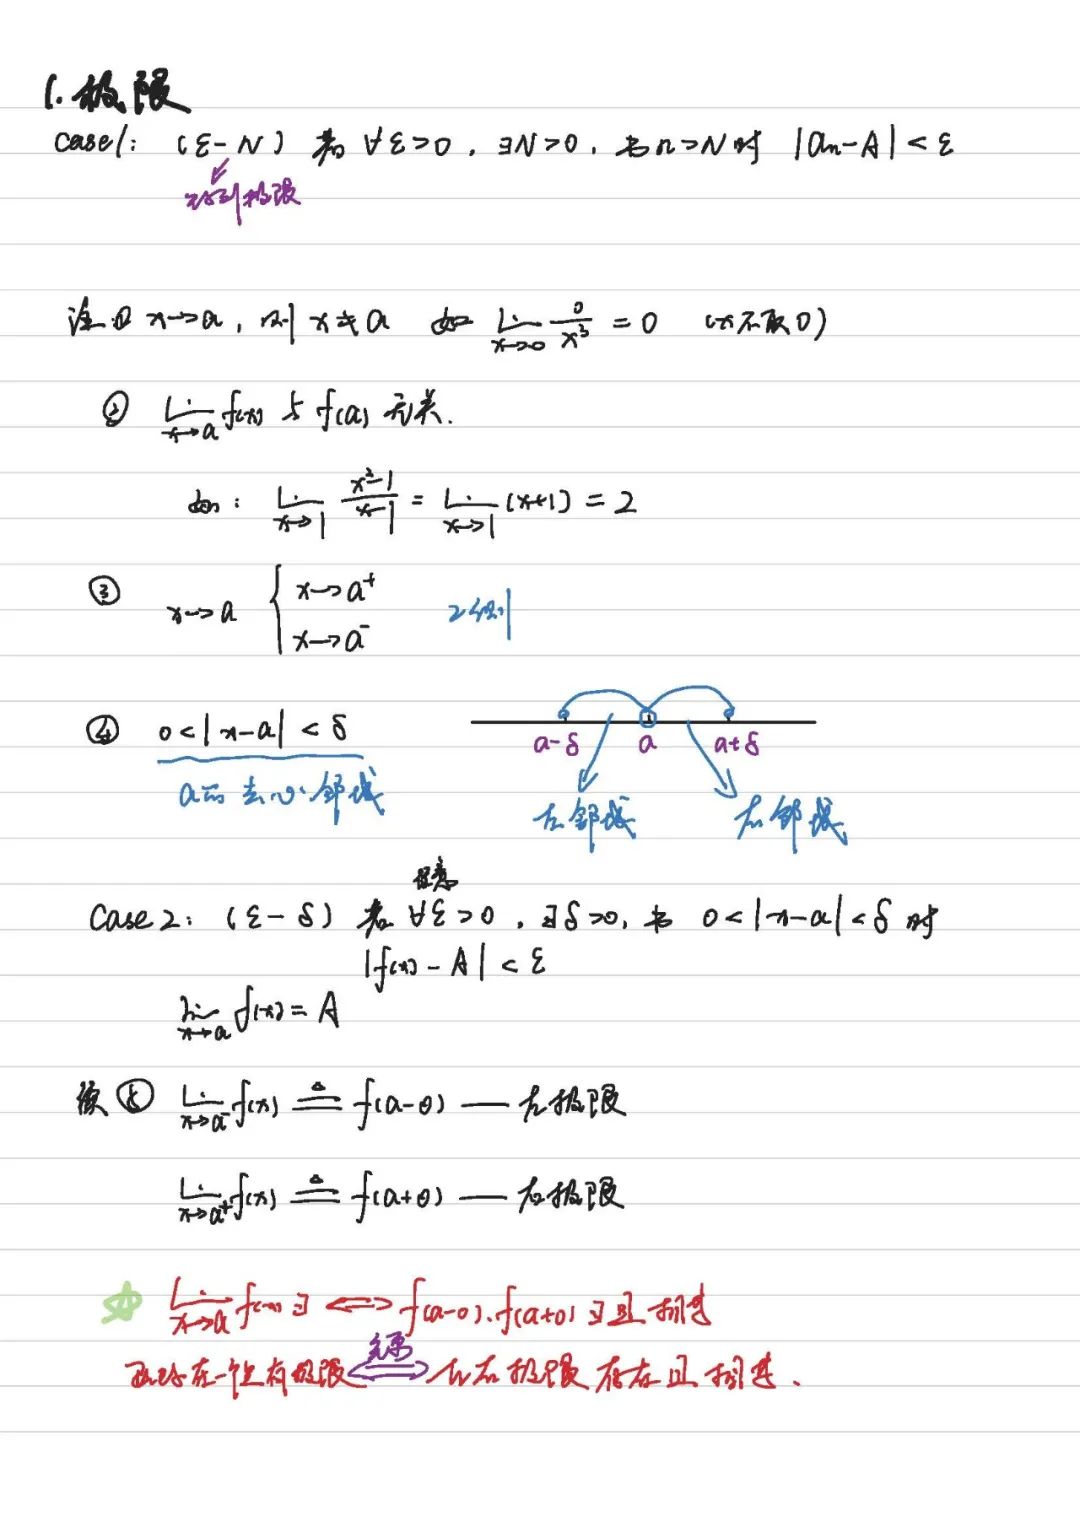 1. 极限
case1: (ε-N) 若 ∀ε>0, ∃N>0, 当n>N时 |an-A|<ε
数列极限
注① x→a, 则 x≠a 如 lim x→0 0/x³ = 0 (x不取0)
② lim x→a f(x) 与 f(a) 无关.
如: lim x→1 (x²-1)/(x-1) = lim x→1 (x+1) = 2
③ x→a { x→a⁺ x→a⁻ 2侧
④ 0<|x-a|<δ
a-δ a a+δ
a的去心邻域 左邻域 右邻域
任意
case2: (ε-δ) 若 ∀ε>0, ∃δ>0, 当 0<|x-a|<δ时
|f(x)-A|<ε
lim x→a f(x)=A
⑤ lim x→a⁻ f(x) ≜ f(a-0) — 左极限
lim x→a⁺ f(x) ≜ f(a+0) — 右极限
lim x→a f(x) ∃ ⟺ f(a-0), f(a+0) ∃且相等
充要
在一个点有极限 ⟺ 左右极限存在且相等.